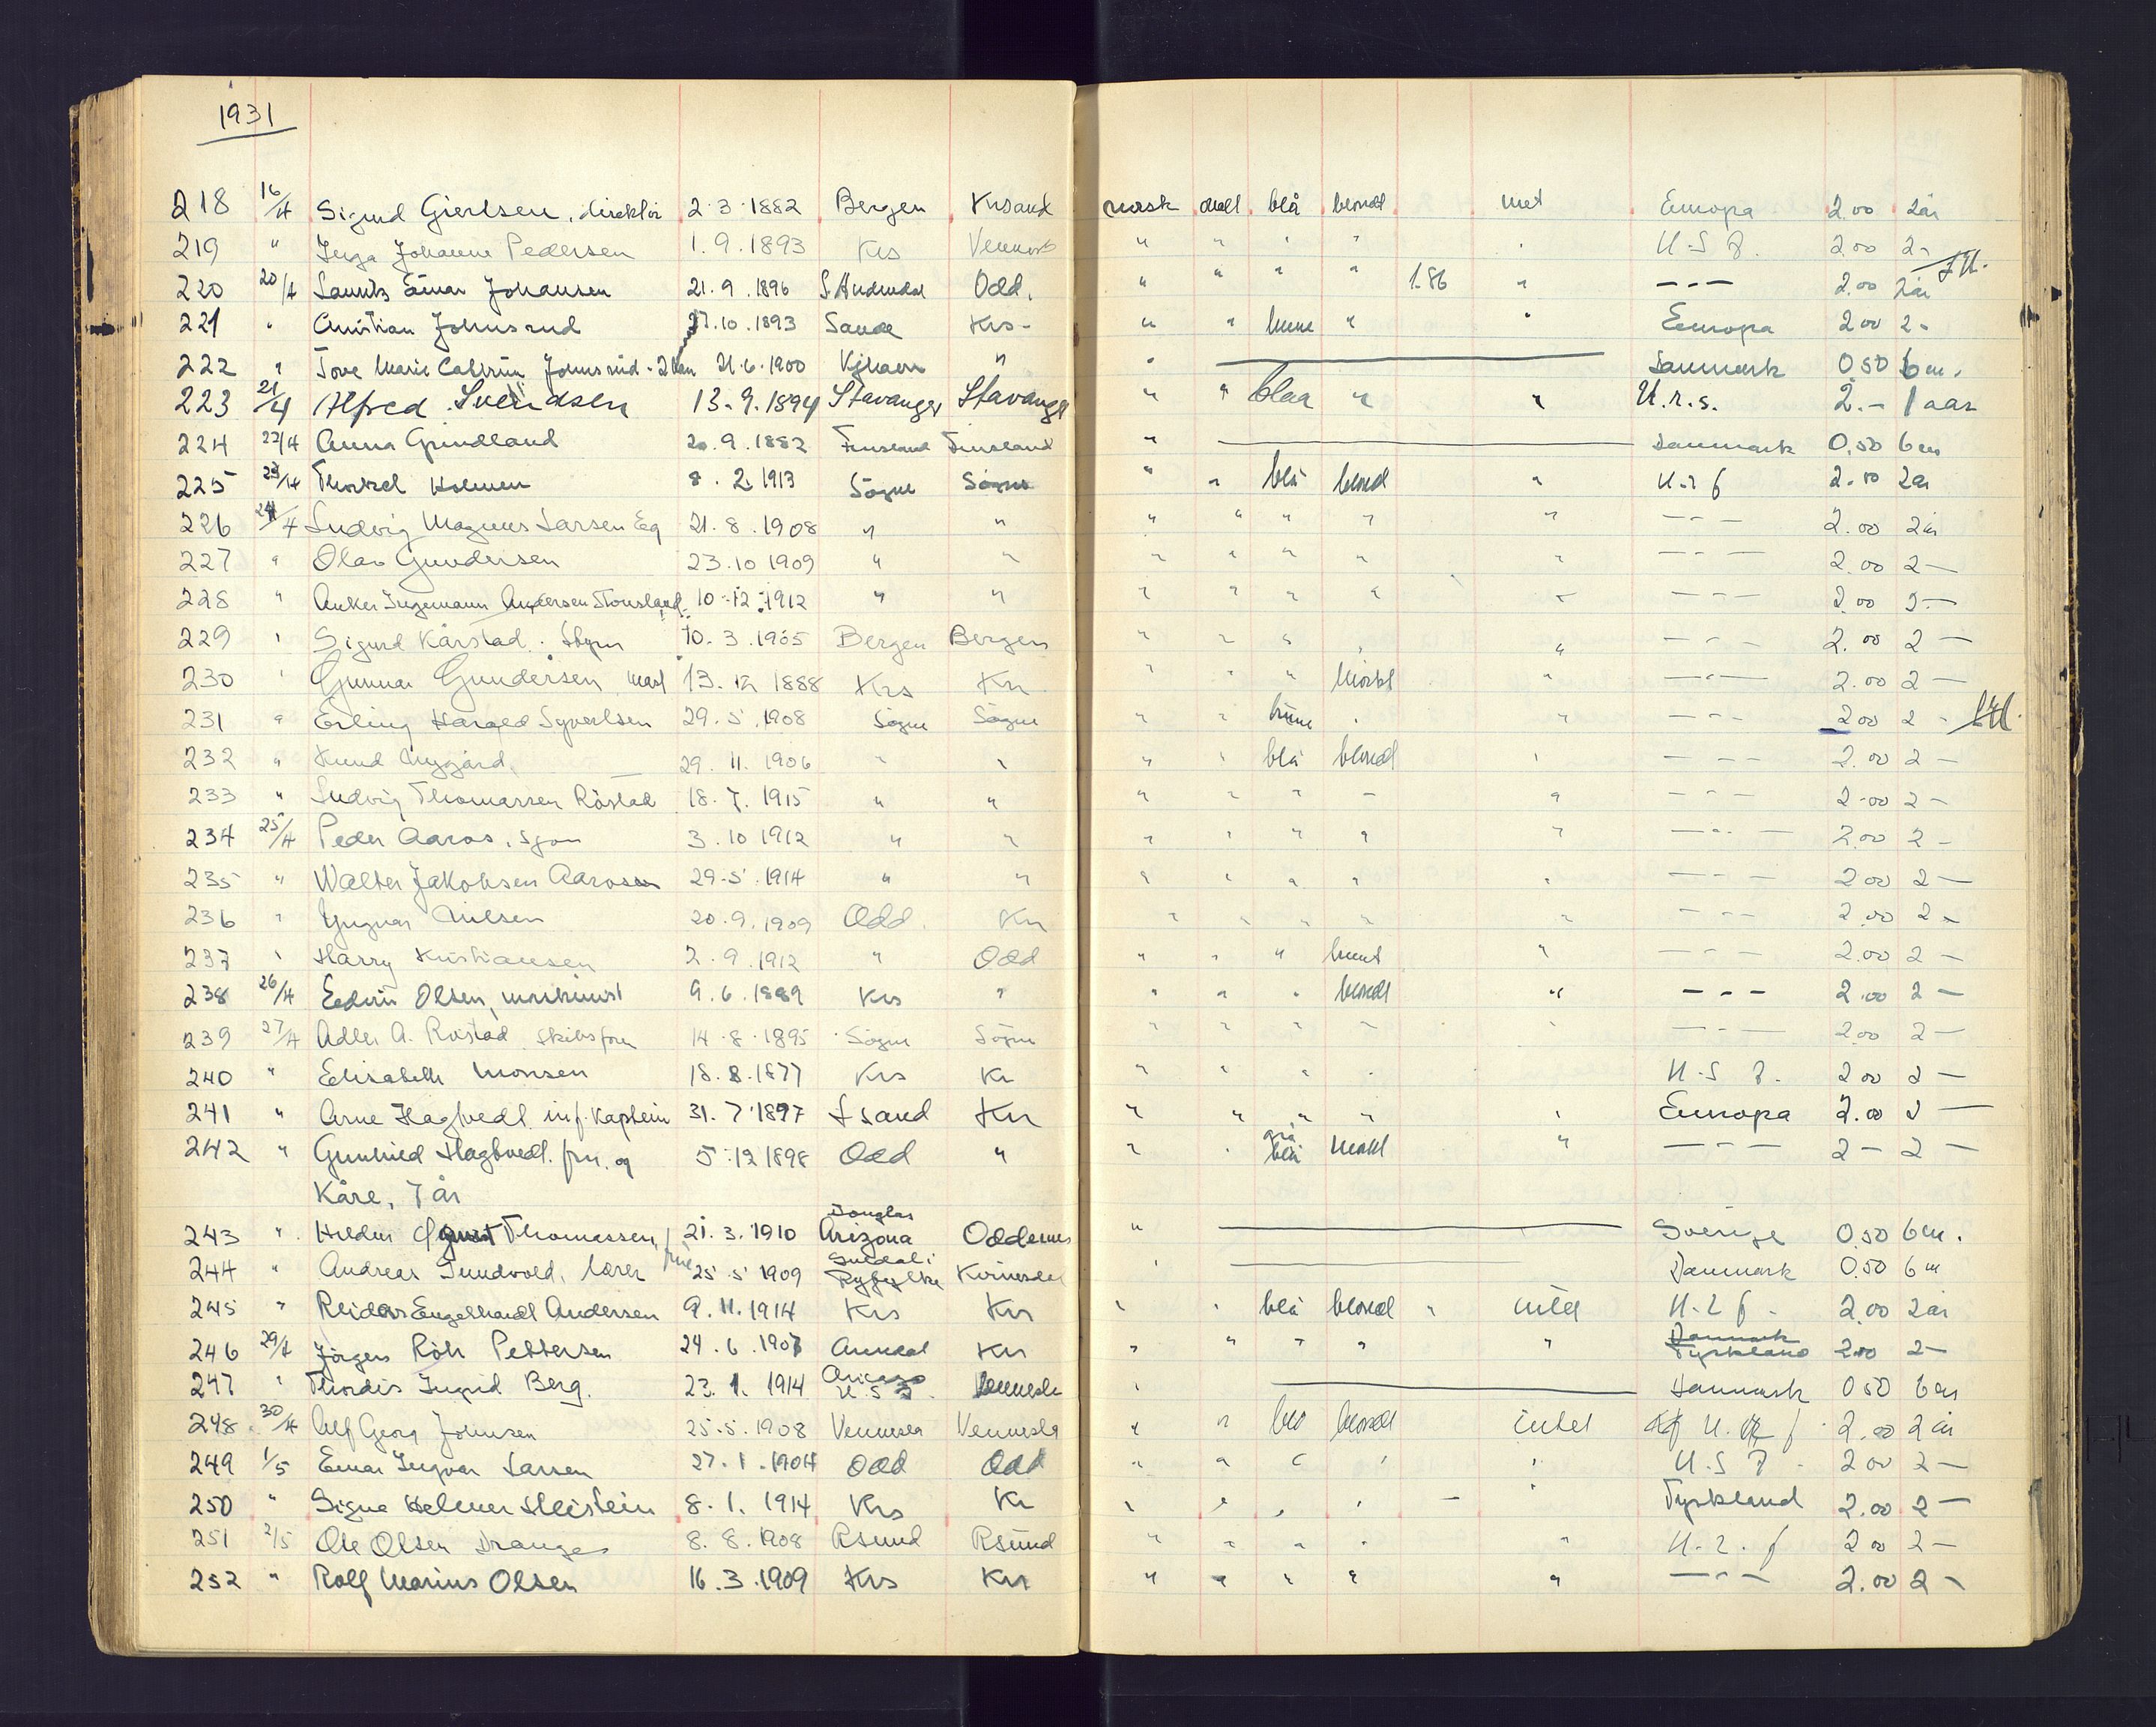 1931
218 16/4 Sigurd Giertsen, direktör 2.3.1882 Bergen Krsand norsk ovalt blå blondt intet Europa 2.00 2 år
219 " Inga Johanne Pedersen 1.9.1893 Krs " " " " " U.S.A. 2.00 2 -
220 20/4 Laurits Einar Johansen 21.9.1896 Odd. " " " " 1.86 " - - - 2.00 2 år
221 " Christian Johnsrud 27.10.1893 Sande Krs. " " brune " " Europa 2.00 2 -
222 " Tove Marie Johnsrud 21.6.1900 Kjhavn " " Danmark 0.50 6 m.
223 21/4 Alfred Svendsen 13.9.1894 Stavanger Stavanger " " blaa " " U.r.s. 2.- 1 aar
224 22/4 Anna Grindland 20.9.1882 Finsland Finsland " Danmark 0.50 6 m
225 23/4 Holmen 8.2.1913 Sögne Sögne " " blå blond " 2.00 2 år
226 24/4 Ludvig Magnus Larsen Eeg 21.8.1908 " " " " " " " - - - 2.00 2 år
227 " Olav Gundersen 23.10.1909 " " " " " " " - - - 2.00 2 -
228 " Anker Ingemann Andersen 10.12.1912 " " " " " " " - - - 2.00 2 -
229 " Sigurd Kårstad 10.3.1905 Bergen Bergen " " " " " - - - 2.00 2 -
230 " Gunnar Gundersen, mask 13.12.1888 Krs Kr " " " mörkt " - - - 2.00 2 -
231 " Erling Harald Syvertsen 29.5.1908 Sögne Sögne " " brune " " - - - 2.00 2 -
232 " Knud Nygård. 29.11.1906 " " " " blå blondt " - - - 2.00 2 -
233 " Ludvig Thomassen Röstad 18.7.1915 " " " " " " " - - - 2.00 2 -
234 25/4 Peder Aaros, 3.10.1912 " " " " " " " - - - 2.00 2 -
235 " Walter Jakobsen Aarosen 29.5.1914 " " " " " " " - - - 2.00 2 -
236 " Yngvar Nilsen 20.9.1909 Odd. Kr " " " " " - - - 2.00 2 -
237 " Harry Kristiansen 2.9.1912 " Odd " " " brunt " - - - 2.00 2 -
238 26/4 Edvin Olsen, maskinist 9.6.1889 Krs " " " " blondt " - - - 2.00 2 -
239 27/4 Adler A. Röstad. 14.8.1895 Sögne Sögne " " " " " - - - 2.00 2 -
240 " Elisabeth Monsen 18.8.1877 Krs Kr " " " " U.S.A. 2.00 2 -
241 " Arne Hagtvedt inf. kaptein 31.7.1897 Kr " " " " " Europa 2.00 2 -
242 " Gunhild Hagtvedt. fru. og 5.12.1898 Odd " " " grå blå " - - - 2 - 2 -
Kåre, 7 år
243 " Thomassen, 21.3.1910 Douglas Arizona Oddernes " Sverige 0.50 6 m.
244 " Andreas lærer 25.5.1909 Suldal i Ryfylke Kvinesdal " Danmark 0.50 6 m
245 " Reidar Engelhardt Andersen 9.11.1914 Krs Kr " " blå blondt " intet 2.00 2 år
246 29/4 Jörgen Röh Pettersen 24.6.1907 Arendal Kr " " " " " Danmark Tyskland 2.00 2 -
247 " Thordis Ingrid Berg. 23.1.1914 Vennesla " Danmark 0.50 6 m
248 30/4 Alf Georg Johnsen 25.5.1908 Vennesla Vennesla " " blå blondt intet 2.00 2 år
249 1/5 Einar Ingvar Larsen 27.1.1904 Odd Odd " " " " " U.S.A. 2.00 2 -
250 " 8.1.1914 Krs Kr " " " " " Tyskland 2.00 2 -
251 2/5 Ole Olsen Drange 8.8.1908 Rsund Rsund " " " " " 2.00 2 -
252 " Rolf Marius Olsen 16.3.1909 Krs Kr " " " " " - - - 2.00 2 -